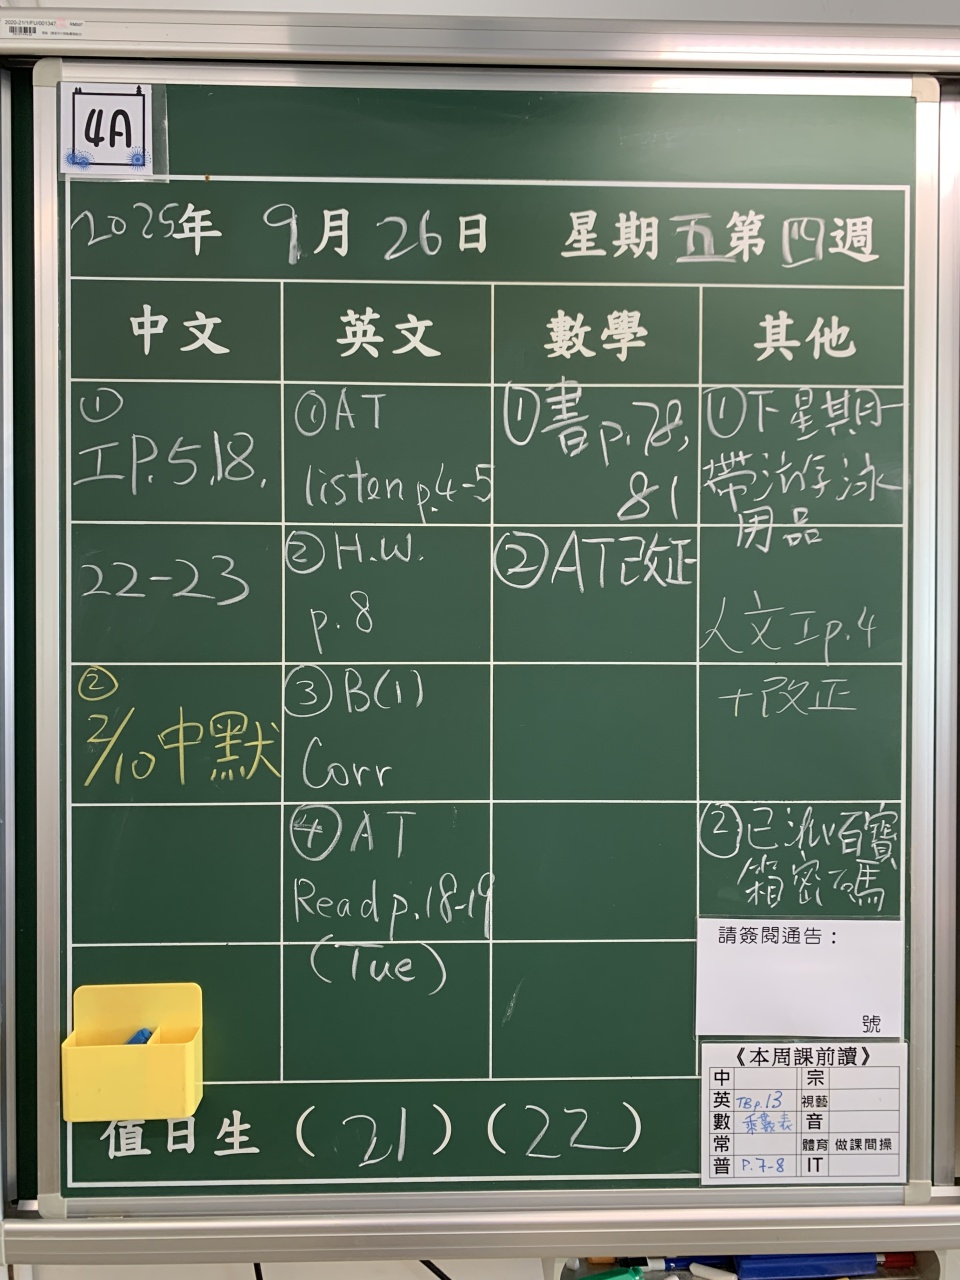 2020-21/1/FU/001347
4A
2025年 9月26日 星期五第四週
中文 英文 數學 其他
①
工P.5,18,
22-23
②
2/10中默
①AT
listen p.4-5
②H.W.
p.8
③B(1)
Corr
④AT
Read p.18-19
(Tue)
①書p.78,
81
②AT改正
①下星期一
帶游泳
用品
人文工p.4
+改正
②已派百寶
箱密碼
請簽閱通告：
號
《本周課前讀》
中 宗
英 TB p.13 視藝
數 乘數表 音
常 體育 做課間操
普 P.7-8 IT
值日生 (21) (22)